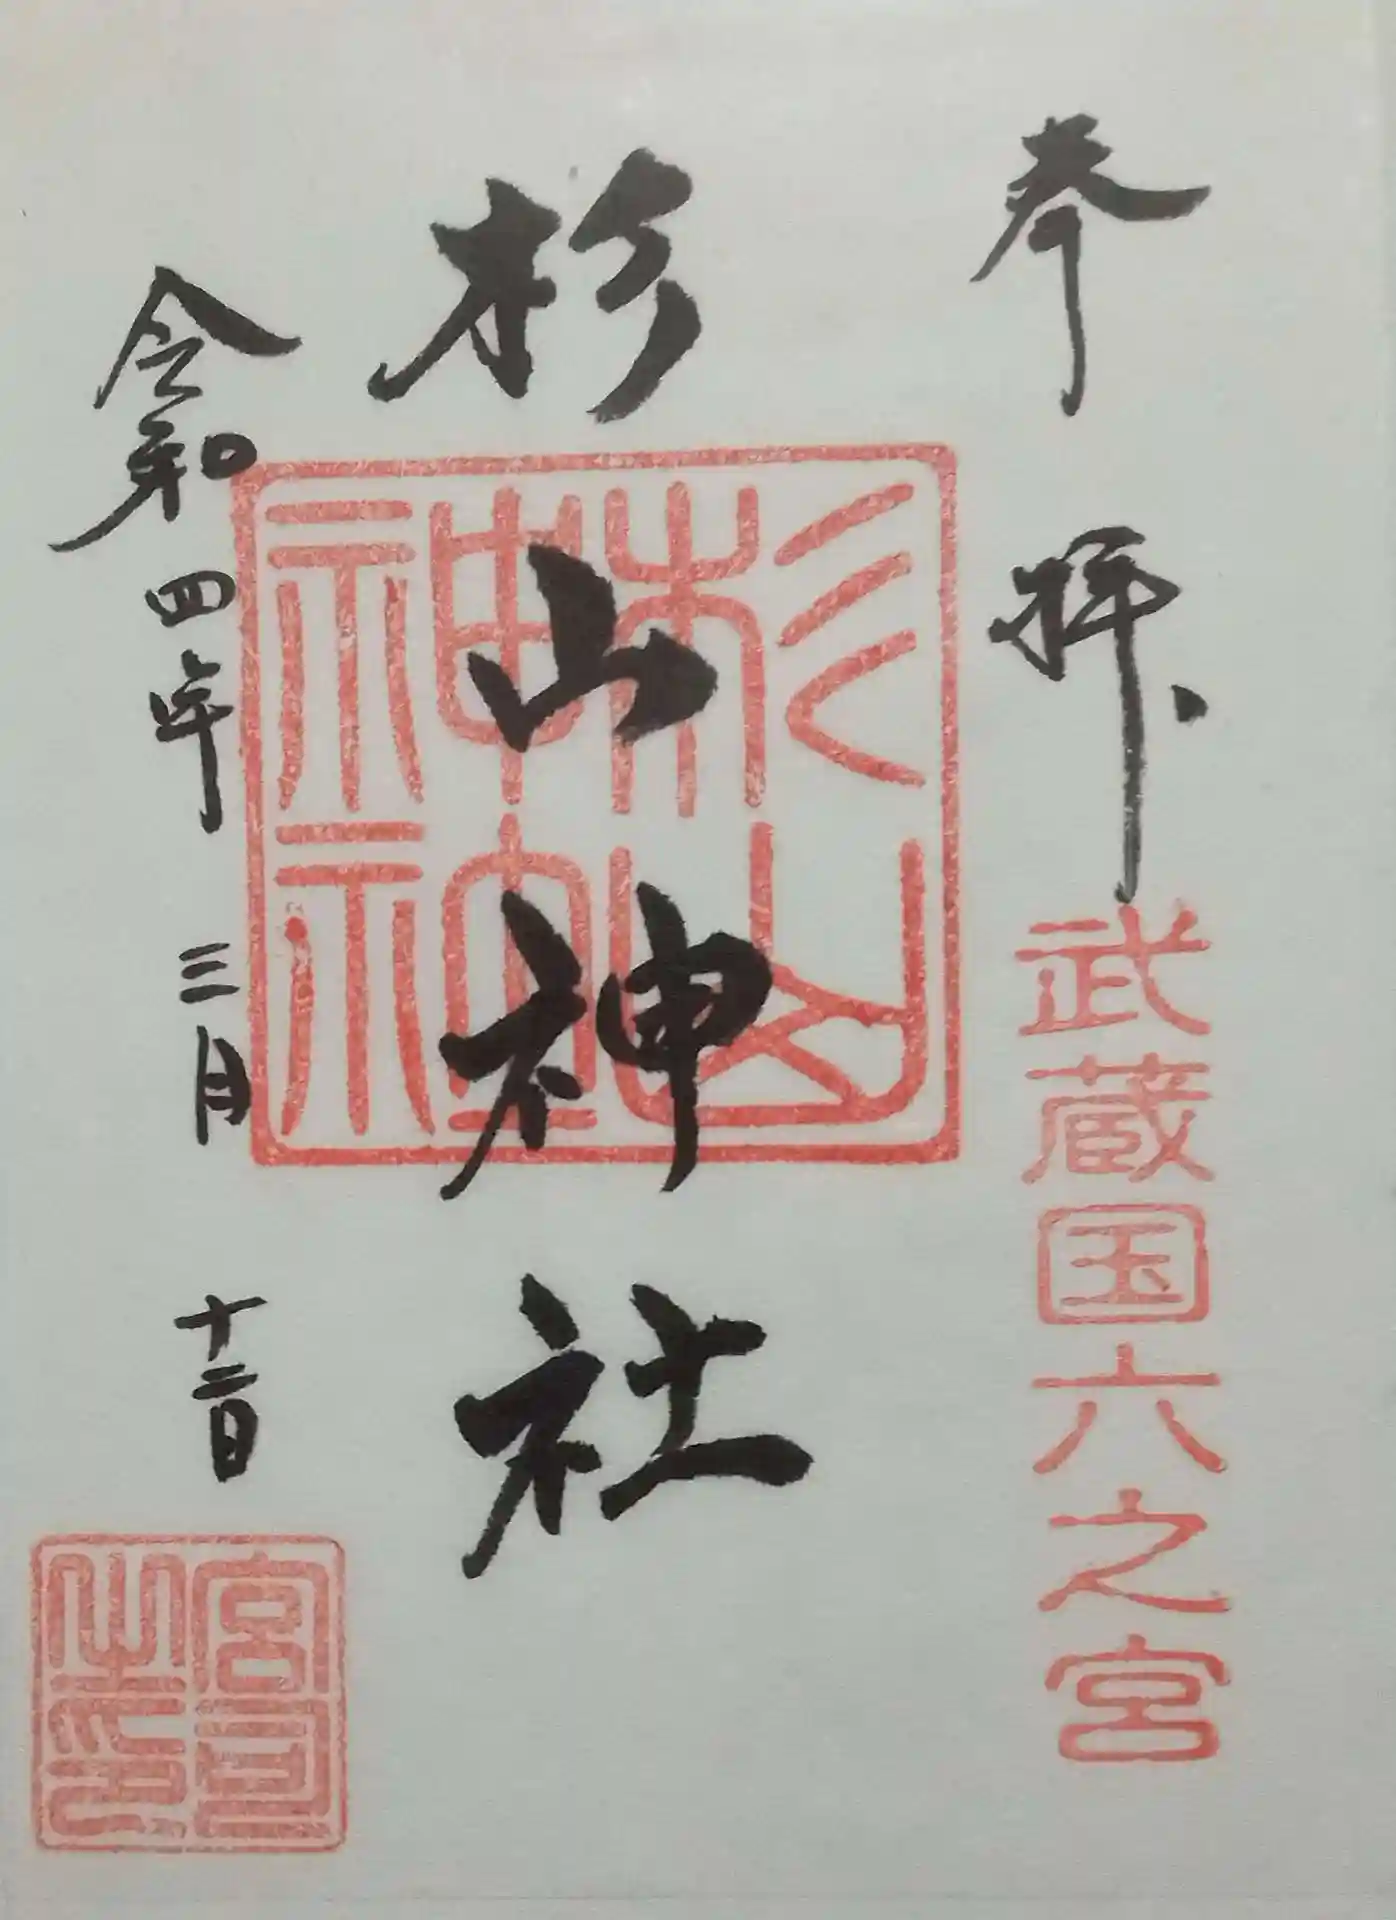 奉拝
武蔵国六之宮
杉山神社
杉山
神社
令和四年三月十二日
宮司
之印